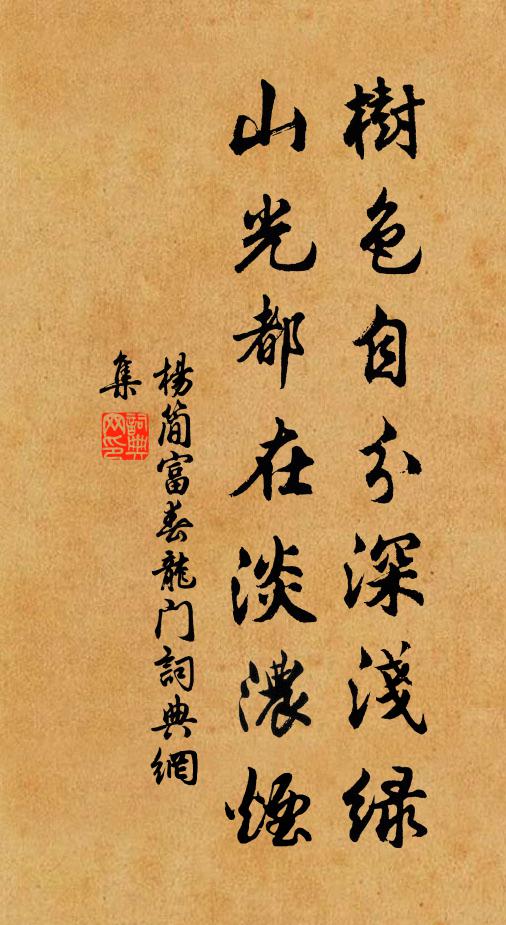 樹色自分深淺綠
山光都在淡濃煙
楊簡富春龍门詞典網
集
詞典网印